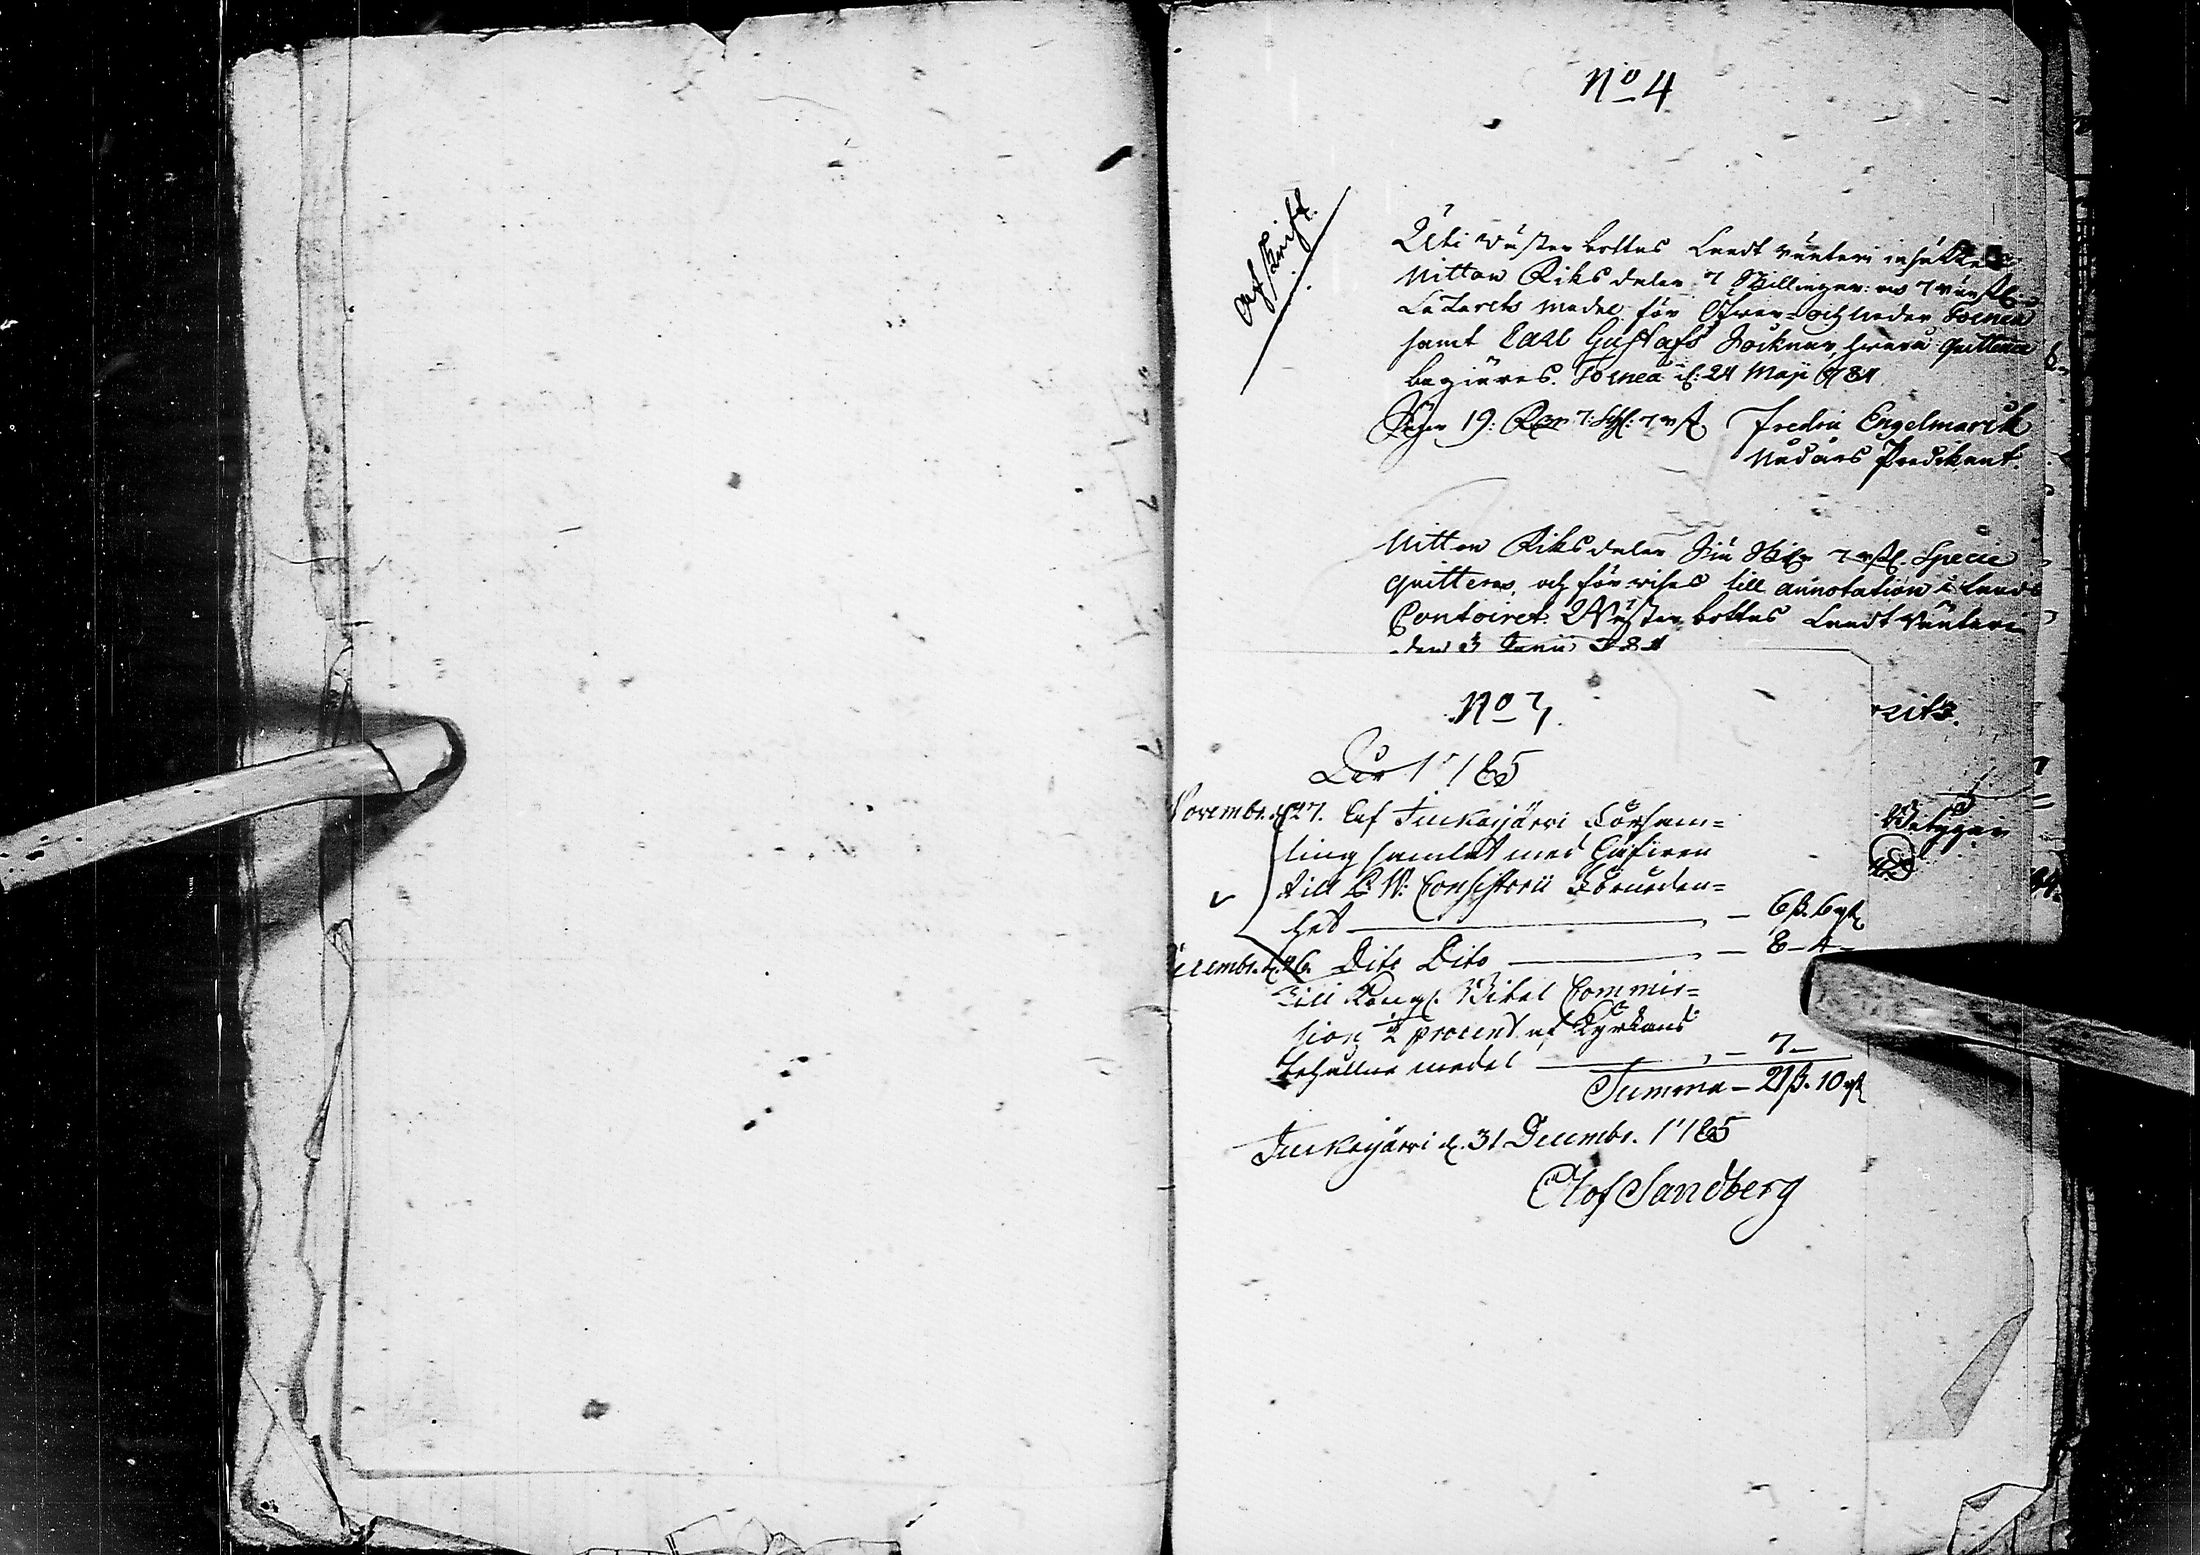 No 4
Afskrift.
Uti Wästerbottns Landt ränteri insätter
Nitton Riksdaler 7 Skillingar
Lazarets medel för Öfwer- och Neder Torneå
samt Carl Gustafs Socknar, hwarå quittence
begiäres. Torneå d: 24 Maji 1784
Säger 19: Rdr 7: sk: 7 rst. Fredric Engelmarck
Nådårs Predikant.
Nitton Riksdaler Siu Skil 7 rst. Specie
quitteras, och förwises till annotation i Lands
Contoiret. Wästerbottns Landt Ränteri
den 3 Junii 784
No 7.
År 1785
Novembr. d. 27. Af Juckasjärvi Försam=
ling samlat med Håfwen
till C. W: Consistorii
het — 6 ß. 6 rst
Decembr. d. 26. Dito Dito — 8 - 4 -
Till Kongl. Commis=
sion 1/2 procent af Kyrkans
behållne medel — 7 -
Summa - 21 ß. 10 rst
Juckasjärvi d. 31 Decembr. 1785
Olof Sandberg
reits.
Betygar